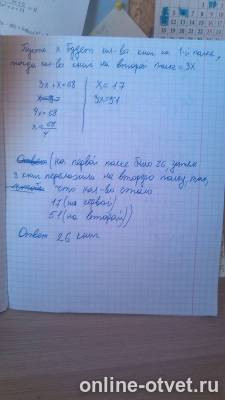 Пусть x будет кол-во книг на 1-й полке,
тогда кол-во книг на второй полке = 3x
3x+x=68
4x=68
x=68/4
x=17
3x=51
(на первой полке было 26, затем
9 книг переложили на вторую полку,
что кол-во стало
17 (на первой)
51 (на второй))
Ответ 26 книг
online-otvet.ru